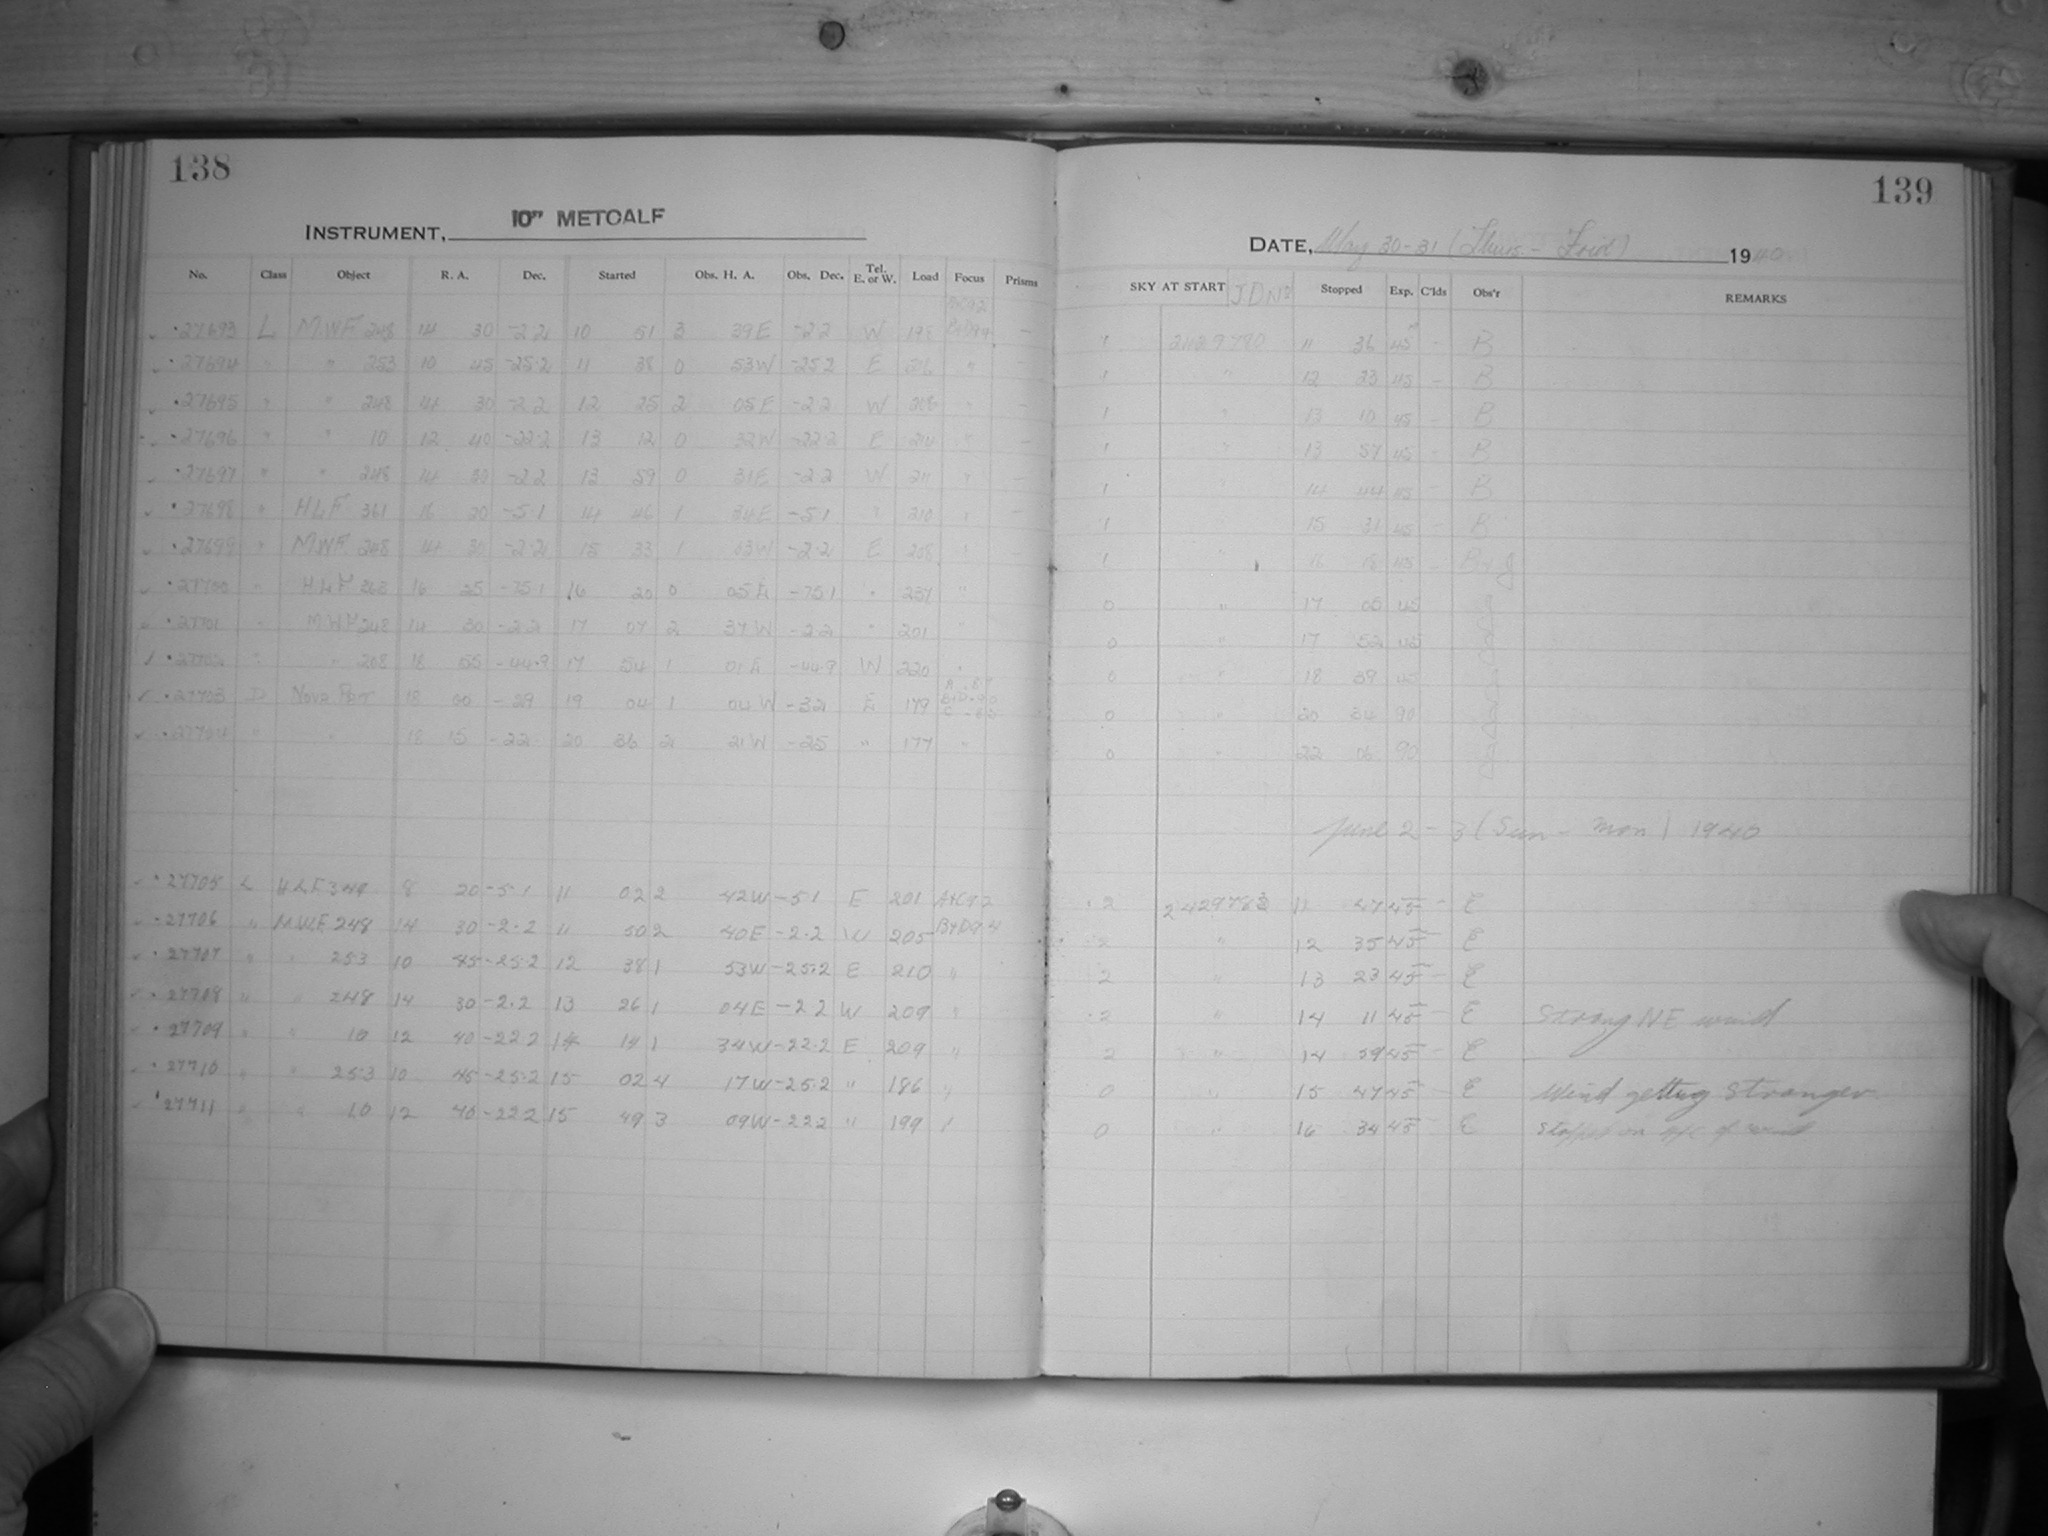 138
INSTRUMENT, 10" METCALF
No. Class Object R. A. Dec. Started Obs. H. A. Obs. Dec. Tel. E. or W. Load Focus Prisms
27693 L MWF 248 14 30 -2.2 10 51 3 39E -2.2 W 198 —
27694 " " 253 10 45 -25.2 11 38 0 53W -25.2 E 206 " —
27695 " " 248 14 30 -2.2 12 25 2 05E -2.2 W 208 " —
27696 " " 10 12 40 -22.2 13 12 0 32W -22.2 E 214 " —
27697 " " 248 14 30 -2.2 13 59 0 31E -2.2 W 211 " —
27698 " HLF 361 16 20 -5.1 14 46 1 34E -5.1 " 210 " —
27699 " MWF 248 14 30 -2.2 15 33 1 03W -2.2 E 208 " —
27700 " HLF 16 25 -75.1 16 20 0 05E -75.1 " 237 "
27701 " MWF 248 14 30 -2.2 17 07 2 37W -2.2 " 201
27702 " " 208 18 55 -44.9 17 54 1 01E -44.9 W 220 "
27703 D Nova 18 00 -29 19 04 1 04W -32 E 179
27704 " " 18 15 -22 20 36 2 21W -25 " 177 "
27705 L HLF 349 8 20 -5.1 11 02 2 42W -5.1 E 201 A+C92
27706 " MWF 248 14 30 -2.2 11 50 2 40E -2.2 W 205 B+D94
27707 " " 253 10 45 -25.2 12 38 1 53W -25.2 E 210 "
27708 " " 248 14 30 -2.2 13 26 1 04E -2.2 W 209 "
27709 " " 10 12 40 -22.2 14 14 1 34W -22.2 E 209 "
27710 " " 253 10 45 -25.2 15 02 4 17W -25.2 " 186 "
27711 " " 10 12 40 -22.2 15 49 3 09W -22.2 " 199 "
139
DATE, May 30-31 (Thurs. - Frid) 1940
SKY AT START JDNo Stopped Exp. C'lds Obs'r REMARKS
1 11 36 45 - B
1 " 12 23 45 - B
1 " 13 10 45 - B
1 " 13 57 45 - B
1 " 14 44 45 - B
1 " 15 31 45 - B
1 " 16 18 45 - B+J
0 " 17 05 45 J
0 " 17 52 45 J
0 " 18 39 45 J
0 " 20 34 90 J
0 " 22 06 90 J
June 2-3 (Sun - Mon) 1940
2 2429783 11 47 45 - E
2 " 12 35 45 - E
2 " 13 23 45 - E
2 " 14 11 45 - E Strong NE wind
2 " 14 59 45 - E
0 " 15 47 45 - E Wind getting Stronger
0 " 16 34 45 - E Stopped on a/c of wind